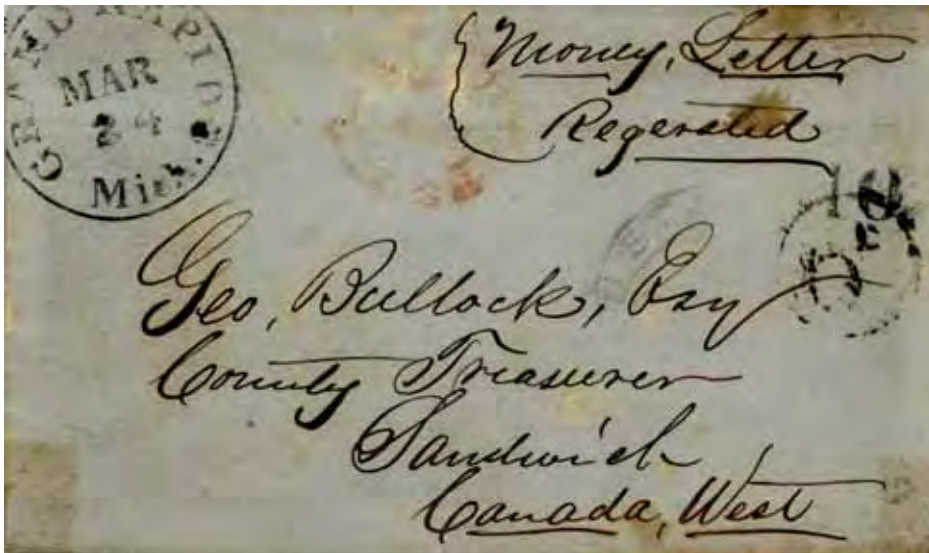 GRAND RAPIDS
MAR
24
Mich.
Money, Letter
Regersted
10
Geo, Bullock, Esqr
County Treasurer
Sandwich
Canada, West